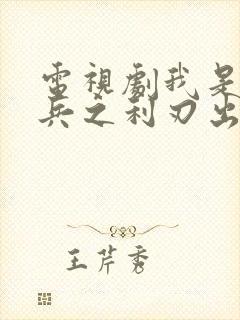 電視劇我是
兵之利刃出
王芹秀